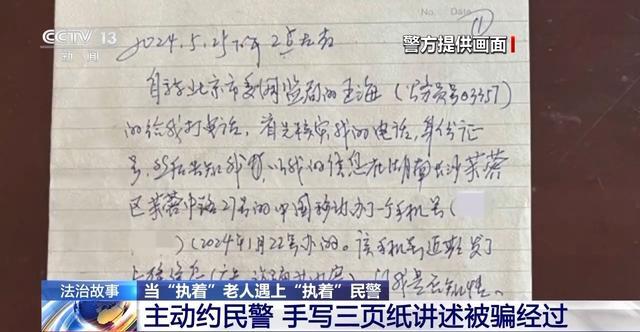 CCTV 13
新闻
No.
Date
①
2024.5.25下午2点左右
警方提供画面
自称北京市委网监局的王海（公务员号03357）
的给我打电话，首先核实我的电话，身份证
号，然后告知我，以我的信息在湖南长沙芙蓉
区芙蓉中路21号的中国移动办了一个手机号（
）（2024年1月22号办的。该手机号近期发了
法治故事
当“执着”老人遇上“执着”民警
主动约民警 手写三页纸讲述被骗经过